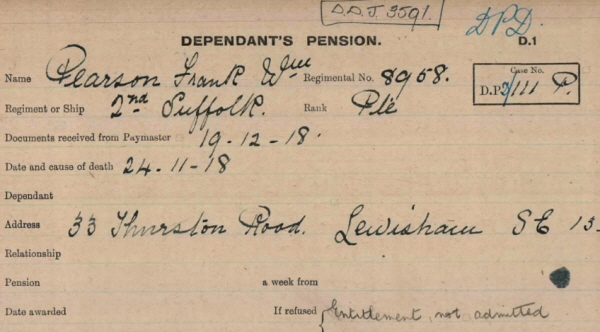 D.D.J. 3591.
D.P.D.
DEPENDANT'S PENSION. D.1
Name Pearson Frank Wm Regimental No. 8958.
Case No.
D.P. 2/111 P.
Regiment or Ship 2nd Suffolk. Rank Pte
Documents received from Paymaster 19-12-18.
Date and cause of death 24-11-18
Dependant
Address 33 Thurston Road. Lewisham SE 13.
Relationship
Pension a week from
Date awarded If refused { Entitlement not admitted